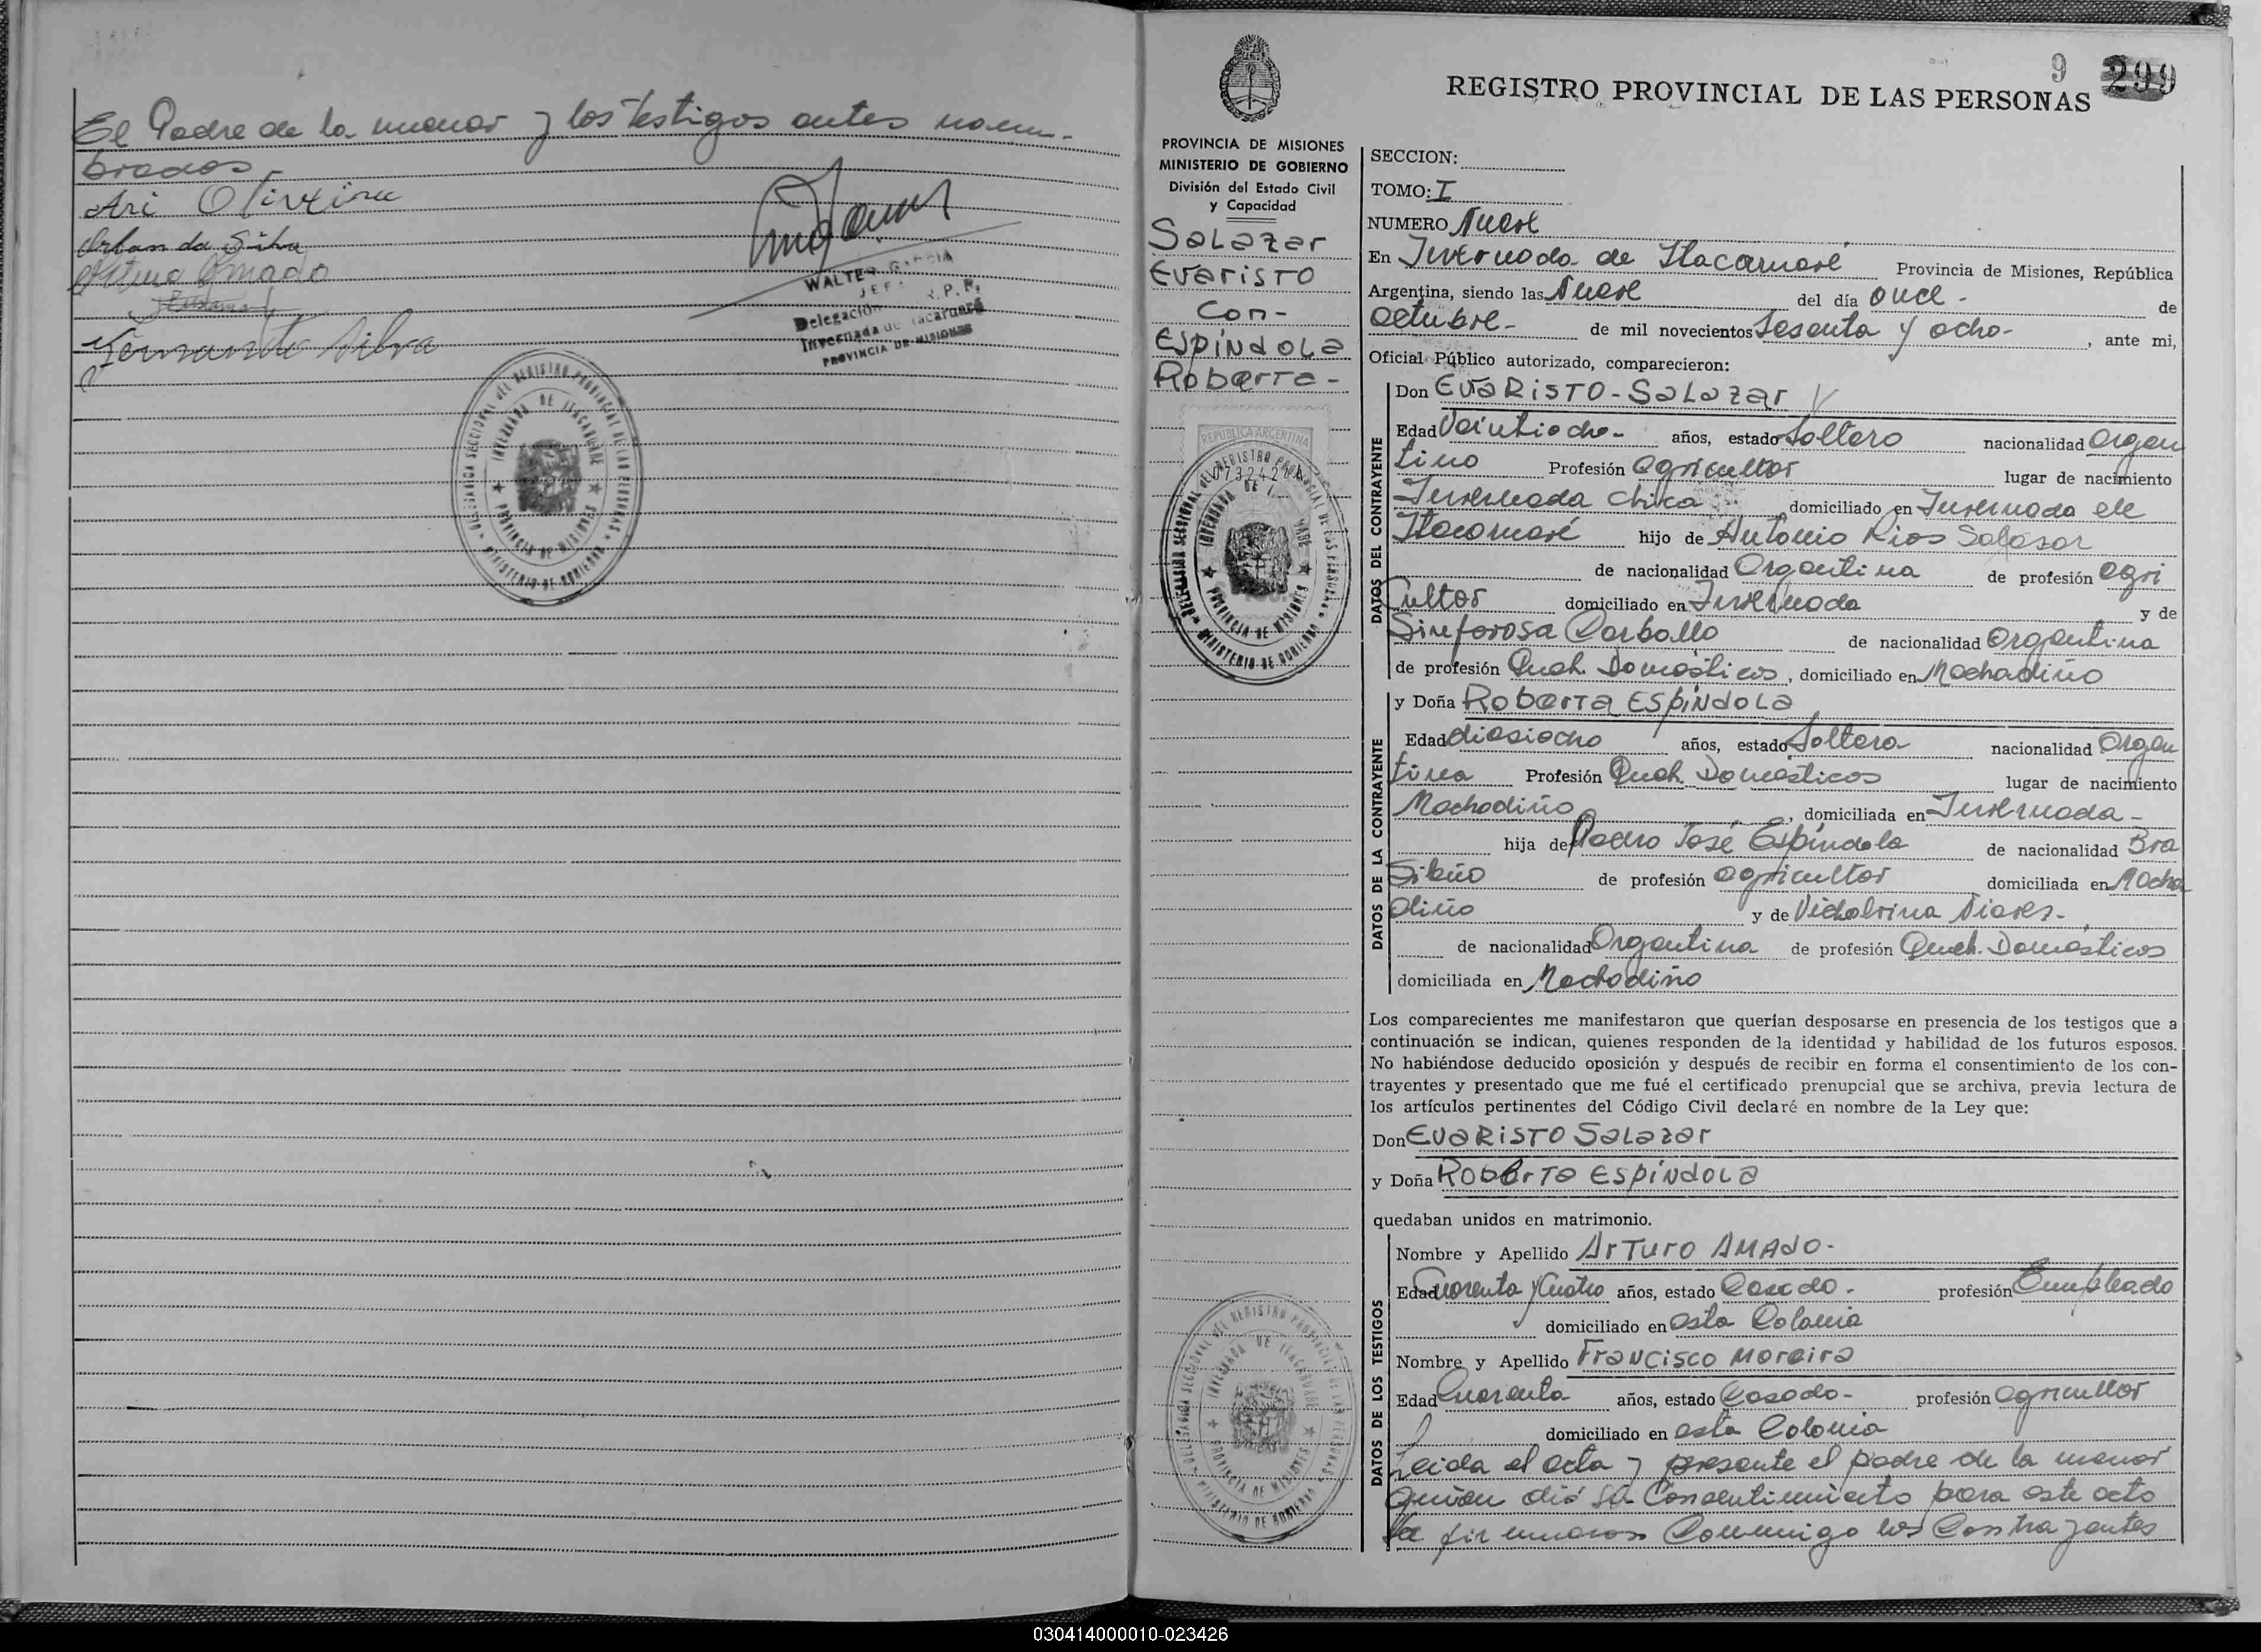 El Padre de la menor y los testigos antes nom-
brados
Ari Oliveira
Orlan da Silva
Arturo Amado
Fernando Silva
WALTER GARCIA
JEFE R.P.P.
Delegación
Invernada de Itacaruaré
PROVINCIA DE MISIONES
DELEGACIÓN SECCIONAL DEL REGISTRO PROVINCIAL DE LAS PERSONAS
INVERNADA DE ITACARUARE
PROVINCIA DE MISIONES
MINISTERIO DE GOBIERNO
PROVINCIA DE MISIONES
MINISTERIO DE GOBIERNO
División del Estado Civil
y Capacidad
Salazar
Evaristo
Con-
Espíndola
Roberta-
REPUBLICA ARGENTINA
DELEGACIÓN SECCIONAL DEL REGISTRO PROVINCIAL DE LAS PERSONAS
PROVINCIA DE MISIONES
MINISTERIO DE GOBIERNO
DELEGACIÓN SECCIONAL DEL REGISTRO PROVINCIAL DE LAS PERSONAS
INVERNADA DE ITACARUARE
PROVINCIA DE MISIONES
MINISTERIO DE GOBIERNO
9 299
REGISTRO PROVINCIAL DE LAS PERSONAS
SECCION:
TOMO: I
NUMERO Nueve
En Invernada de Itacaruaré Provincia de Misiones, República
Argentina, siendo las Nueve del día once - de
octubre- de mil novecientos Sesenta y ocho- , ante mi,
Oficial Público autorizado, comparecieron:
DATOS DEL CONTRAYENTE
Don Evaristo-Salazar
Edad Veintiocho- años, estado Soltero nacionalidad Argen
tino Profesión Agricultor lugar de nacimiento
Invernada Chica domiciliado en Invernada de
Itacaruaré hijo de Antonio Rios Salasar
de nacionalidad Argentina de profesión agri
Cultor domiciliado en Invernada y de
Sinforosa Carballo de nacionalidad Argentina
de profesión Queh. Domésticos, domiciliado en Machadiño
DATOS DE LA CONTRAYENTE
y Doña Roberta Espíndola
Edad diesiocho años, estado Soltera nacionalidad Argen
tina Profesión Queh. Domésticos lugar de nacimiento
Machadiño, domiciliada en Invernada-
hija de Pedro José Espíndola de nacionalidad Bra
Sileño de profesión agricultor domiciliada en Macha
diño y de
de nacionalidad Argentina de profesión Queh. Domésticos
domiciliada en Machadiño
Los comparecientes me manifestaron que querían desposarse en presencia de los testigos que a
continuación se indican, quienes responden de la identidad y habilidad de los futuros esposos.
No habiéndose deducido oposición y después de recibir en forma el consentimiento de los con-
trayentes y presentado que me fué el certificado prenupcial que se archiva, previa lectura de
los artículos pertinentes del Código Civil declaré en nombre de la Ley que:
Don Evaristo Salazar
y Doña Roberta Espíndola
quedaban unidos en matrimonio.
DATOS DE LOS TESTIGOS
Nombre y Apellido Arturo Amado-
Edad Cuarenta y Cuatro años, estado Casado - profesión Empleado
domiciliado en esta Colonia
Nombre y Apellido Francisco Moreira
Edad Cuarenta años, estado Casado- profesión agricultor
domiciliado en esta Colonia
Leida el acta y presente el padre de la menor
quien dió su Consentimiento para este acto
la firmaron Conmigo los Contrayentes
030414000010-023426